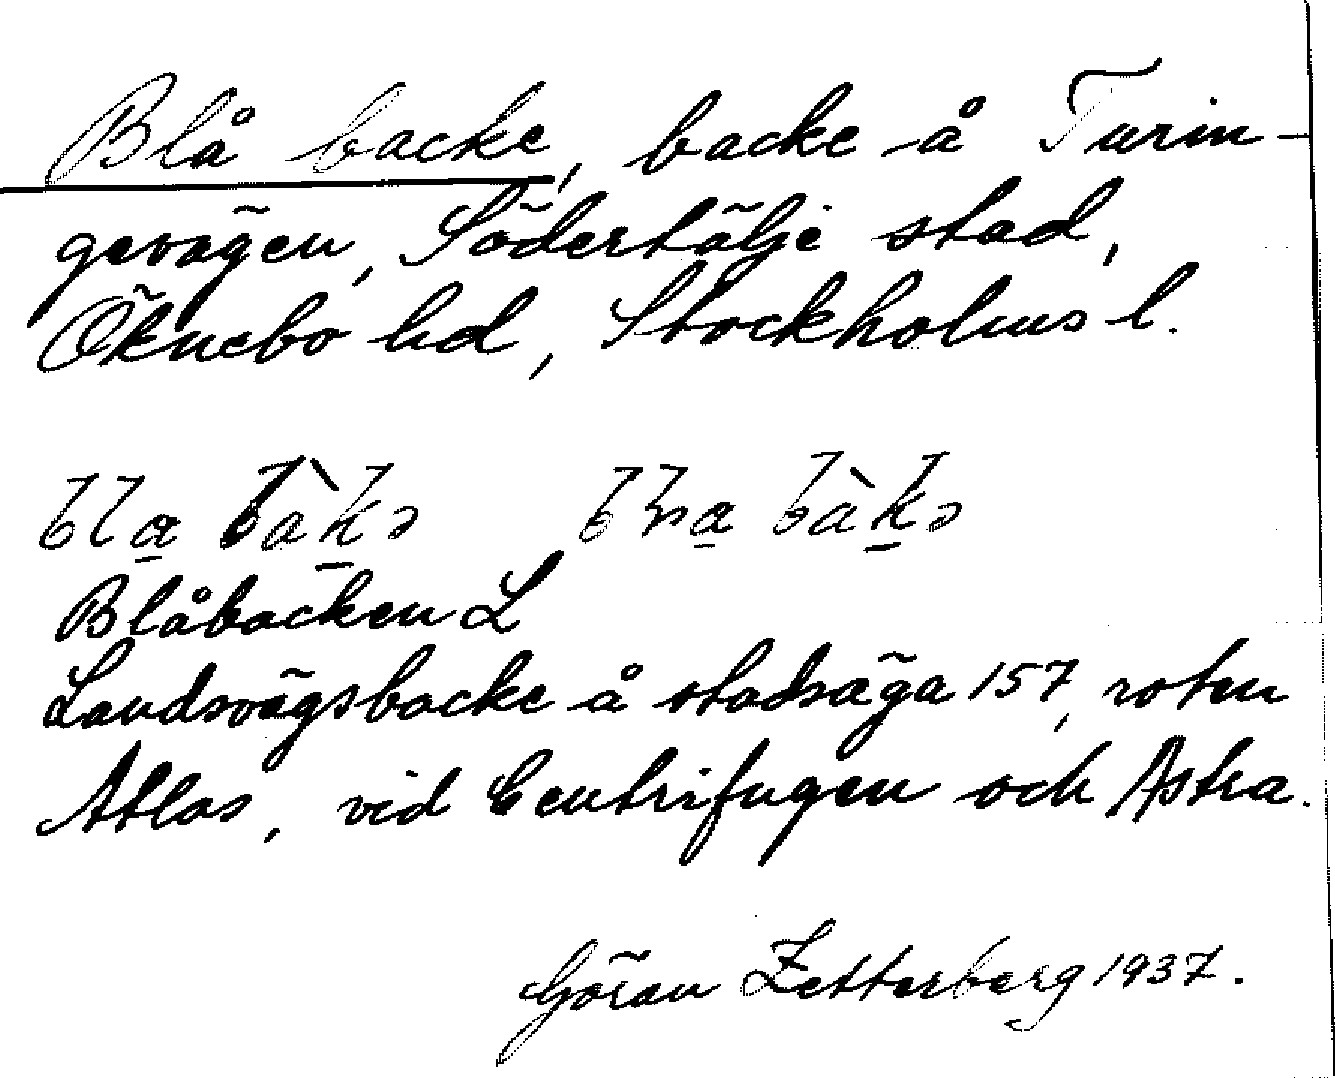 Blå backe, backe å Turin-
gevägen, Södertälje stad,
Öknebo hd, Stockholms l.
Blåbacken L
Landsvägsbacke å stadsäga 157, roten
Atlas, vid Centrifugen och Astra.
Göran Zetterberg 1937.